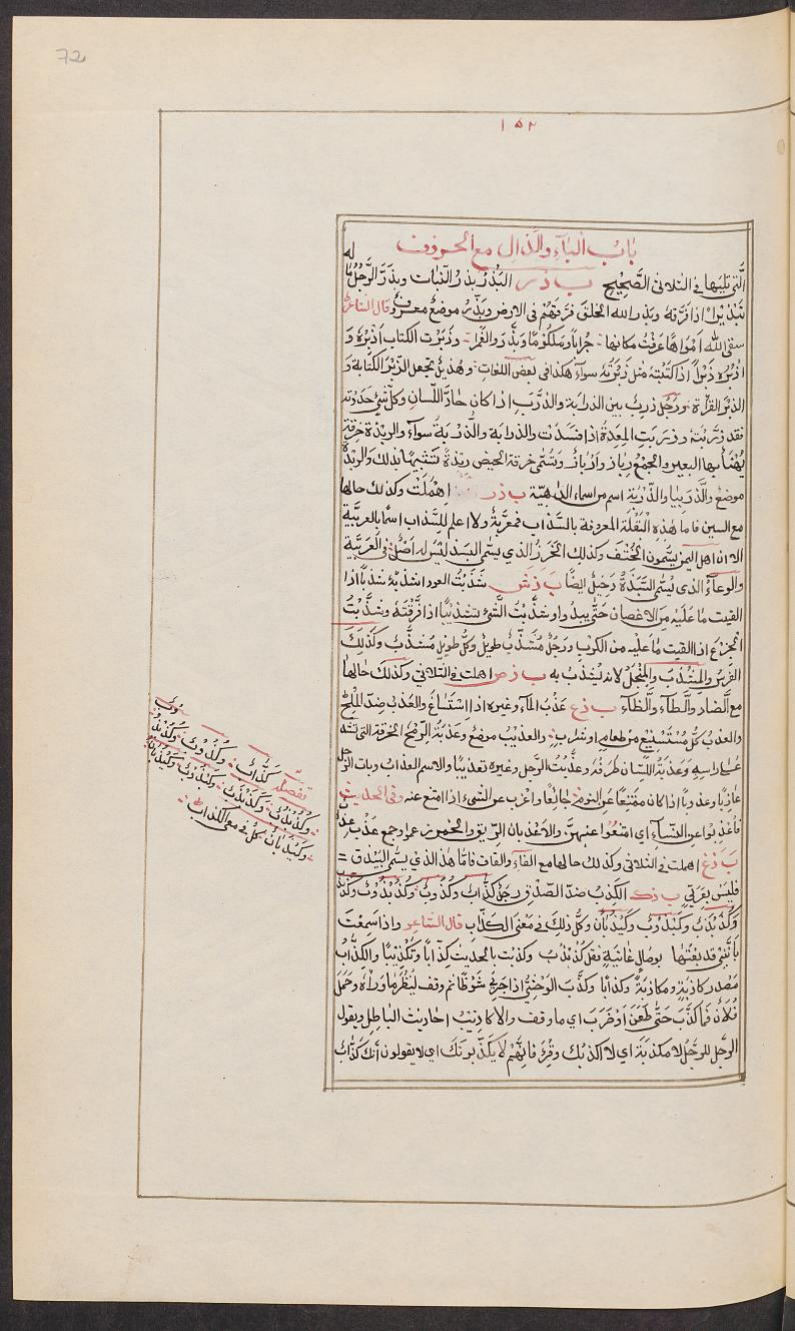 72
١٥٢
باب الباء والذال مع الحروف
الَّتي تليها في الثلاثي الصَّحِيْحِ ب ذ ر البَذْرُ بذرُ النّبات وبَذَّرَ الرَّجُلُ مَالَه
تَبْذيْراً اذا فَرَّقهُ وبَذر الله الخلقَ فرّقهُمْ في الارض وبَذَّرُ موضعٌ معروفٌ قال الشاعرُ
سقى اللهُ اَمْوَاهًا عَرَفْتُ مكانها جُراباً ومَلكُوْمًا وبَذَّرَ والغَمْرا وذَبَرْت الكتاب اَذْبُرُه وَ
اَذْبِرُه ذَبْراً اذا كَتَبْتَهُ مثل زَبَرْتُهُ سواءٌ هكذا في بعض اللغات وهُذيلٌ تجعل الزَّبْرَ الكتابة وَ
الذَبْرَ القراءة ورَجُل ذَرِبٌ بين الذرابَة والذَّرَبِ اذا كان حادَّ اللّسان وكلّ شيءٍ حَدَدْته
فقد ذَرَّبْتَهُ وذربَتِ المِعدَةُ اذا فسَدَت والذرابَة والذُّرْبَةُ سواءٌ والرِبْذة خِرقة
يُهْنَأُ بها البعير والجمْعُ رِباذ واَرْباذٌ وتُسَمَّى خرقةُ الحيض رِبْذَةً تشبيهًا بذلك والرَبَذَةُ
موضعٌ والذَّرَبيّا والذّرْبَة اسم من اسماء الداهيَة ب ذ ز اهْمِلَتْ وكذلك حالها
مع السين فاما هذه البَقْلَة المعروفة بالسَّذاب فمعرَّبةٌ ولا اعلم للسَّذاب اسمًا بالعربيَّة
الا ان اهل اليمن يسَمّونه الخُتْفَ وكذلك الخَرَزُ الذي يسمَّى البسَّذ ليْسَ له اَصْلٌ في العَربيَّة
والوعاءُ الذي يُسمَّى السَّبَذةُ دَخِيْلٌ ايضًا ب ذ ش شَذَبْتُ العود اشذبُهُ شذبًا اذا
القيت مَا عَلَيْه مِنَ الاغصان حَتَّى يبدُو وشَذَّبْتُ الشَّيْ تشذيْبًا اذا فرَّقتَهُ وشَذَّبْتُ
الجِزعَ اذا القيت مَا عَلَيْه من الكرَبِ ورَجُلٌ مُشَذَّبٌ طويْلٌ وكلّ طويْلٍ مُشَذَّبٌ وكَذلِكَ
الفَرَسُ والمِشْذَبُ المِنْجَلُ لانه يُشْذَبُ به ب ذ ص اهملت في الثلاثي وكذلك حالها
مع الضاد والطاء والظاء ب ذ ع عَذُبَ الماءُ وغيره اذا اسْتَسَاغَ والعَذْبُ ضدّ المِلْحِ
والعذبُ كلّ مُسْتَسيْغٍ من طعام او شراب والعذيْبُ موضع وعَذَبَةُ الرّمْحِ الخرقة التي تشَدّ
عَلى راسه وَعَذَبَةُ اللّسان طَرَفُهُ وعذَّبْتُ الرَّجل وغيره تعذيْبًا والاسم العذاب وبات الرَّجُل
عاذبًا وعذوبًا اذا كان مُمْتَنِعًا عن النوْم جائِعًا واعزب عن الشيْء اذا امتنع عنه وفي الحديث
فاعْذِبوا عن النّساء اي امتنعُوا عنهنَّ والاَعْذَبان الرّيق والخمر وجمع عَذْبٍ عِذابٌ
ب ذ غ اهملت في الثلاثي وكذلك حالها مع الفاء والقاف فامّا هذا الذي يسمَّى البَيْذق =
فليسَ بعَرَبيّ ب ذ ك الكَذِبُ ضدّ الصّدْق رجلٌ كَذَّابٌ وكَذُوبٌ وكُذُبْذُوْبٌ
وكُذُبْذُبٌ وكَيْذَبٌ وكَيْذُبَانٌ وكلّ ذلك في معنى الكذّاب قال الشّاعر واذا سَمِعْتَ
بأنَّني قد بعْتُها بوِصَالِ غانِيَةٍ فقُلْ كُذُبْذُبُ وكذبْت بالحديث كِذَاباً وتَكْذيْبًا والكِذَّابُ
مصْدر كاذبته مكاذبةً وكذابًا وكَذَّبَ الوَحْشِيُّ اذا جَرى شَوْطًا ثم وقف ليَنْظرَ مَا ورَاءَهُ وحَمَلَ
فُلان فَما كَذَّبَ حَتَّى طَعَنَ اَوْ ضَرَبَ اي ما وقف والاكاذيبُ احاديث الباطل ويقول
الرَّجل للرَّجُل لا مَكْذَبَةَ اي لا اكذبك وقُرِئَ فانّهُمْ لا يكذّبونَكَ اي لا يقولون اَنَّك كَذّابٌ
تفصيله كَذَّابٌ وكَذُوبٌ
وكُذُبْذُبٌ وكَيْذَبٌ
وكَيْذُبَانٌ كلّ في معنى الكذاب